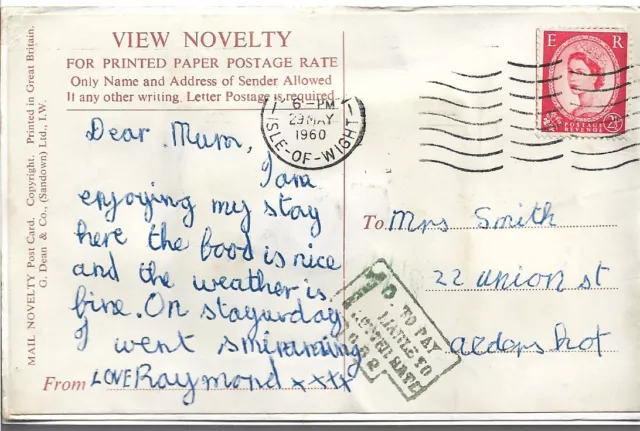 VIEW NOVELTY
FOR PRINTED PAPER POSTAGE RATE
Only Name and Address of Sender Allowed
If any other writing, Letter Postage is required.
MAIL NOVELTY Post Card. Copyright. Printed in Great Britain.
G. Dean & Co., (Sandown) Ltd., I.W.
6 - PM
29 MAY
1960
ISLE-OF-WIGHT
E R
POSTAGE
REVENUE
2½
Dear Mum,
I am
enjoying my stay
here the food is nice
and the weather is
fine. On stayurday
I went smimming
From LOVE Raymond xxxx
To Mrs Smith
22 union st
aldershot
TO PAY
LIABLE TO
LETTER RATE